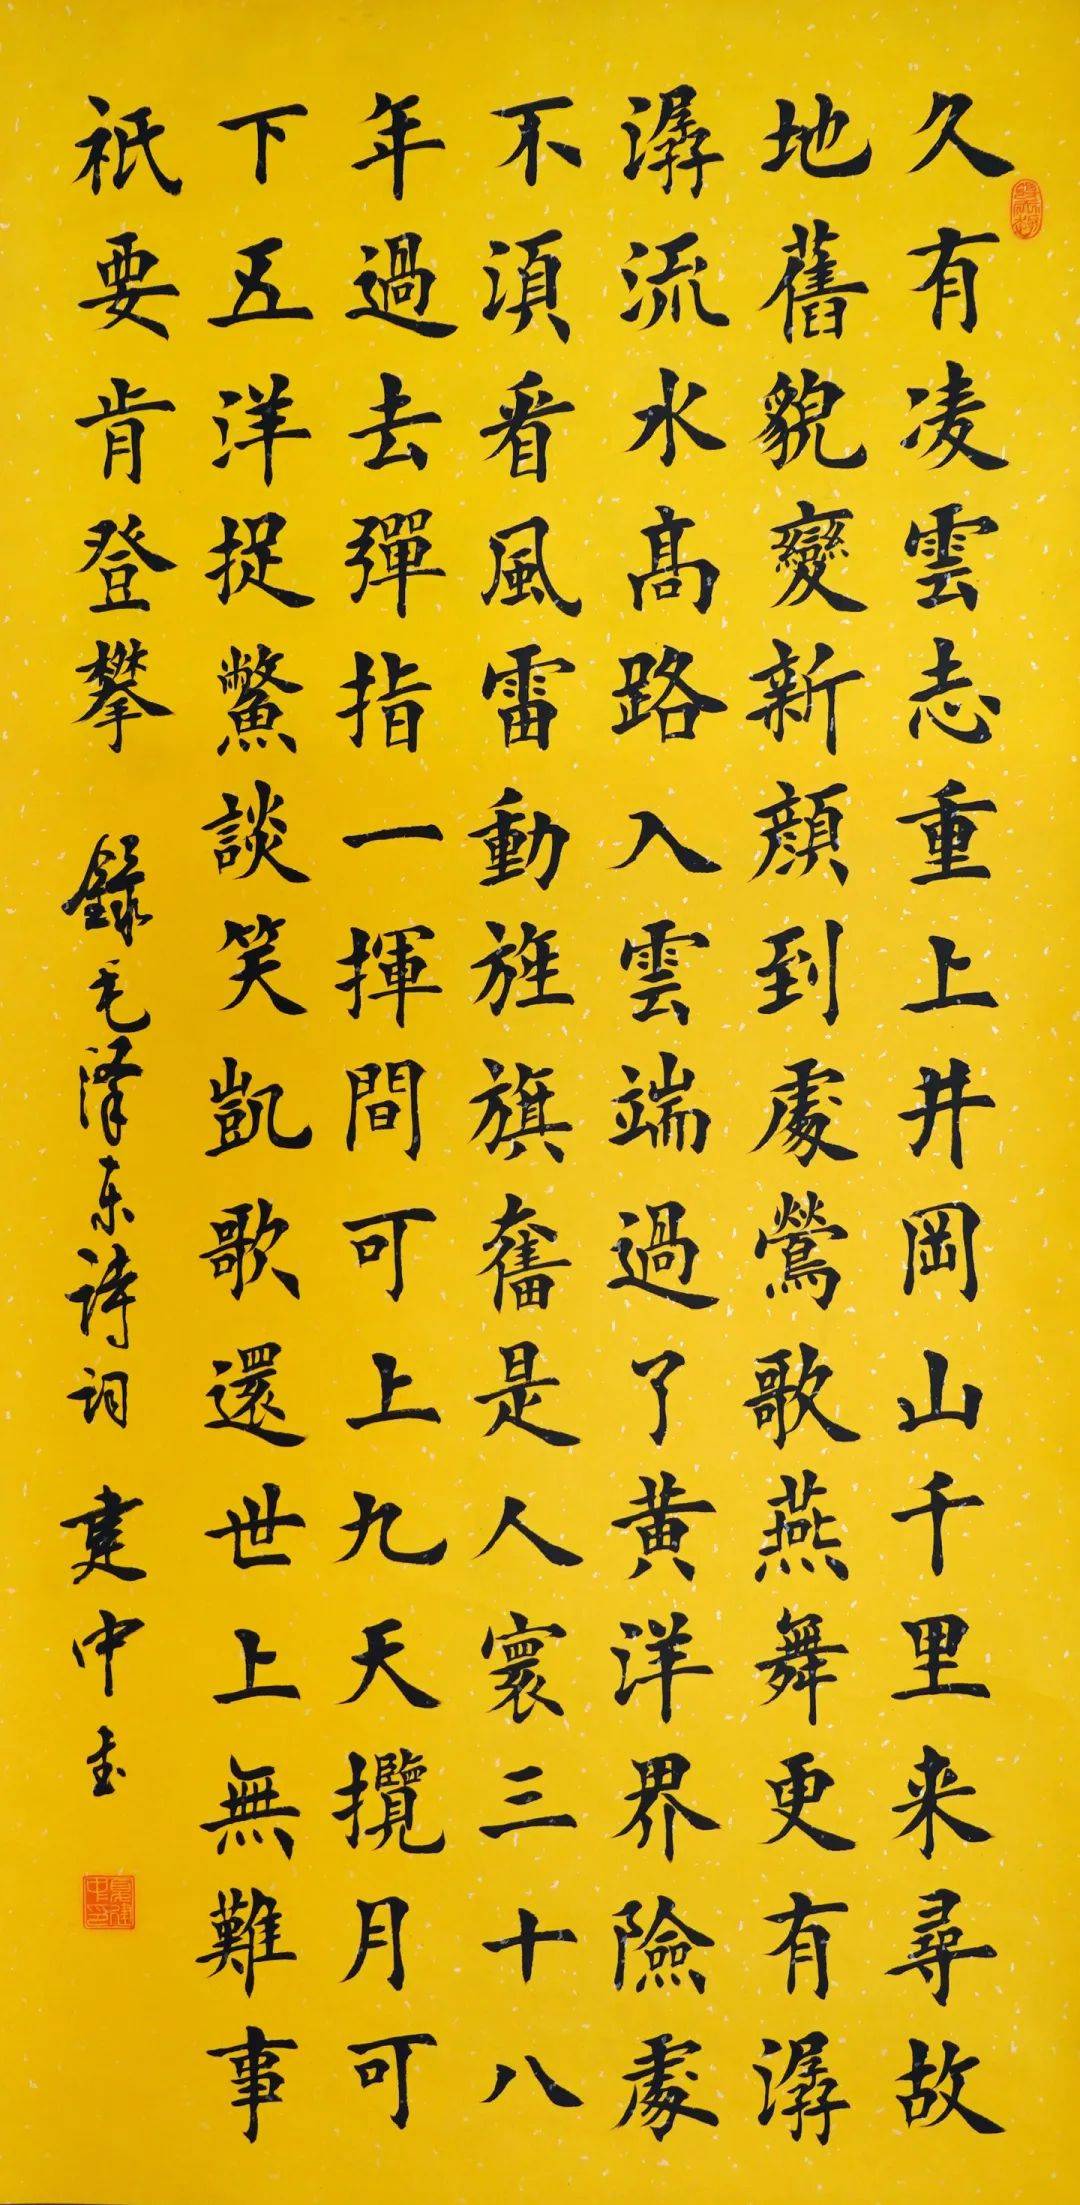 久有凌雲志重上井岡山千里来尋故
地舊貌變新顔到處鶯歌燕舞更有潺
潺流水髙路入雲端過了黄洋界險處
不須看風雷動旌旗奮是人寰三十八
年過去彈指一揮間可上九天攬月可
下五洋捉鱉談笑凱歌還世上無難事
祇要肯登攀 録毛泽东诗词 建中書
夏建中印